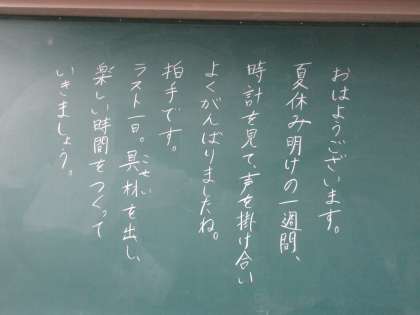 おはようございます。
夏休み明けの一週間、
時計を見て、声を掛け合い
よくがんばりましたね。
拍手です。
ラスト一日。具材を出し、
こせい
楽しい時間をつくって
いきましょう。